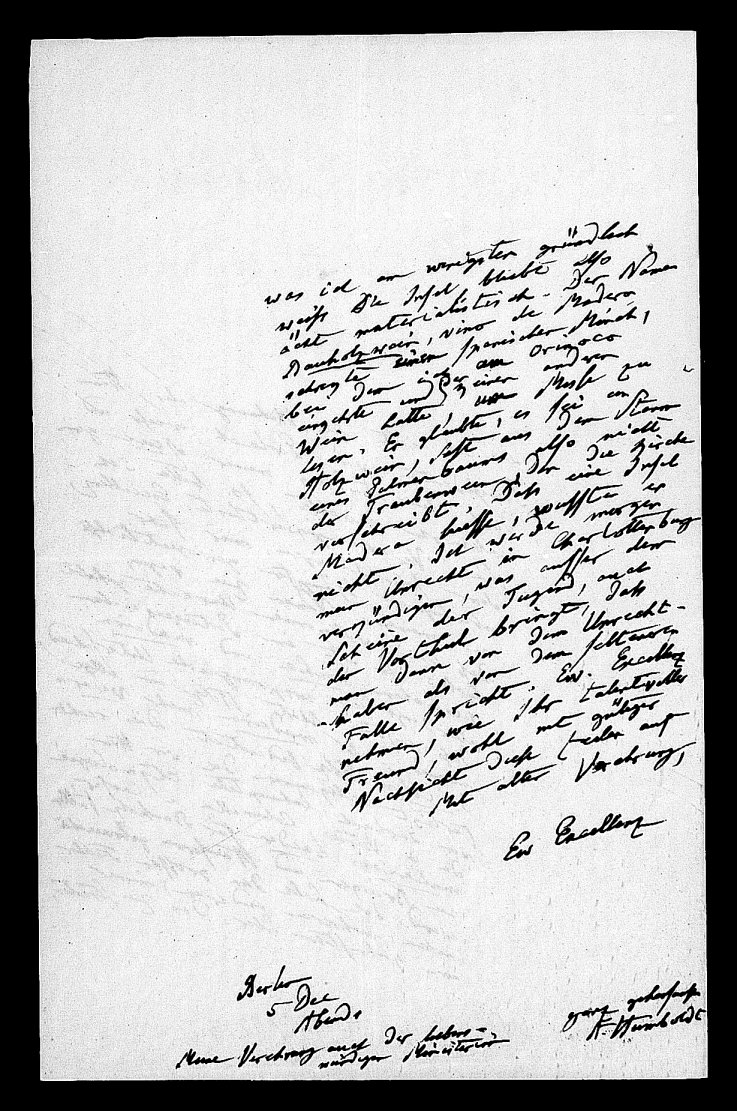 was ich am wenigsten gründlich
weiß. Die Insel bleibt also
ächt materialistisch. Der Namen
Bauholzwein, vino de Madera
schregte einen spanischer Mönch,
bei dem ich am Orinoco
einen andern
Wein hatte, um Messe zu
lesen. Er glaubte, es sei ein
Holzwein, Saft aus dem Stamm
eines Palmenbaums also nicht
der Traubenwein, den die Kirche
vorschreibt. Dass eine Insel
Madera heisse, wusste er
nicht. Ich werde morgen
mein Unrecht in Charlottenburg
verkündigen, was ausser dem
Scheine der Tugend, auch
den Vortheil bringt, dass
man dann von dem Unrecht-
haben als von dem selteneren
Falle spricht. Ew. Excellenz
nehmen, wie Ihr talentvoller
Freund, wohl mit gütiger
Nachsicht diese Zeilen auf
Mit alter Verehrung,
Ew Excellenz
Berlin
5 Dec
Abends
ganz gehorsamster
A Humboldt
Meine Verehrung auch der liebens-
würdigen Ministerin